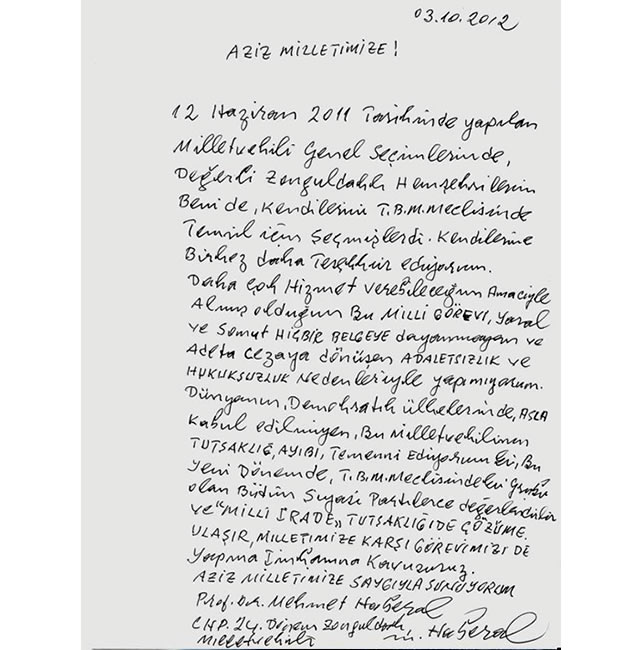 03.10.2012
AZİZ MİLLETİMİZE!
12 Haziran 2011 Tarihinde yapılan
Milletvekili Genel Seçimlerinde,
Değerli Zonguldaklı Hemşehrilerim
Beni de, Kendilerini T.B.M.Meclisinde
Temsil için Seçmişlerdi. Kendilerine
Birkez daha Teşekkür ediyorum.
Daha çok Hizmet verebileceğim Amacıyle
Almış olduğum Bu MİLLİ GÖREVİ, Yasal
ve Somut HİÇBİR BELGEYE dayanmayan ve
Adeta cezaya dönüşen ADALETSIZLIK ve
HUKUKSUZLUK Nedenleriyle yapamıyorum.
Dünyanın, Demokratik ülkelerinde, ASLA
Kabul edilmiyen, Bu Milletvekilinin
TUTSAKLIĞ, AYIBI, Temenni Ediyorum ki, Bu
Yeni Dönemde, T.B.M.Meclisindeki Grubu
olan Bütün Siyasi Partilerce değerlendirilir
ve "MİLLİ İRADE" TUTSAKLIĞIDE ÇÖZÜME
ULAŞIR, MİLLETİMİZE KARŞI GÖREVİMİZİ DE
Yapma İmkanına Kavuşuruz.
AZİZ MİLLETİMİZE SAYGIYLA SUNUYORUM
Prof. Dr. Mehmet Haberal
CHP. 24. Dönem Zonguldak M. Haberal
Milletvekili